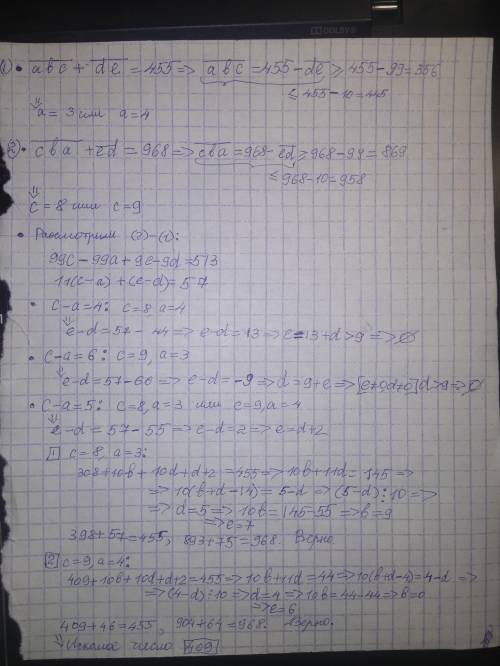 DOLBY
1) • abc + de = 455 => abc = 455 - de ≥ 455 - 99 = 356
≤ 455 - 10 = 445
⇓
a = 3 или a = 4
2) • cba + ed = 968 => cba = 968 - ed ≥ 968 - 99 = 869
≤ 968 - 10 = 958
⇓
c = 8 или c = 9
• Рассмотрим (2)-(1):
99c - 99a + 9e - 9d = 513
11(c-a) + (e-d) = 57
• c-a=4: c=8, a=4
⇓
e-d = 57 - 44 => e-d = 13 => e = 13+d > 9 => ∅
• c-a=6: c=9, a=3
⇓
e-d = 57-66 => e-d = -9 => d = 9+e => [e≠0, d≠0] d > 9 => ∅
• c-a=5: c=8, a=3 или c=9, a=4
⇓
e-d = 57-55 => e-d = 2 => e = d+2
1 c=8, a=3:
308+10b+10d+d+2 = 455 => 10b+11d = 145 =>
=> 10(b+d-14) = 5-d => (5-d)⋮10 =>
=> d=5 => 10b = 145-55 => b=9
=> e=7
398+57=455, 893+75=968. Верно.
2 c=9, a=4:
409+10b+10d+d+2=455 => 10b+11d=44 => 10(b+d-4)=4-d =>
=> (4-d)⋮10 => d=4 => 10b=44-44 => b=0
=> e=6
409+46=455, 904+64=968. Верно.
⇓
Искомое число 409